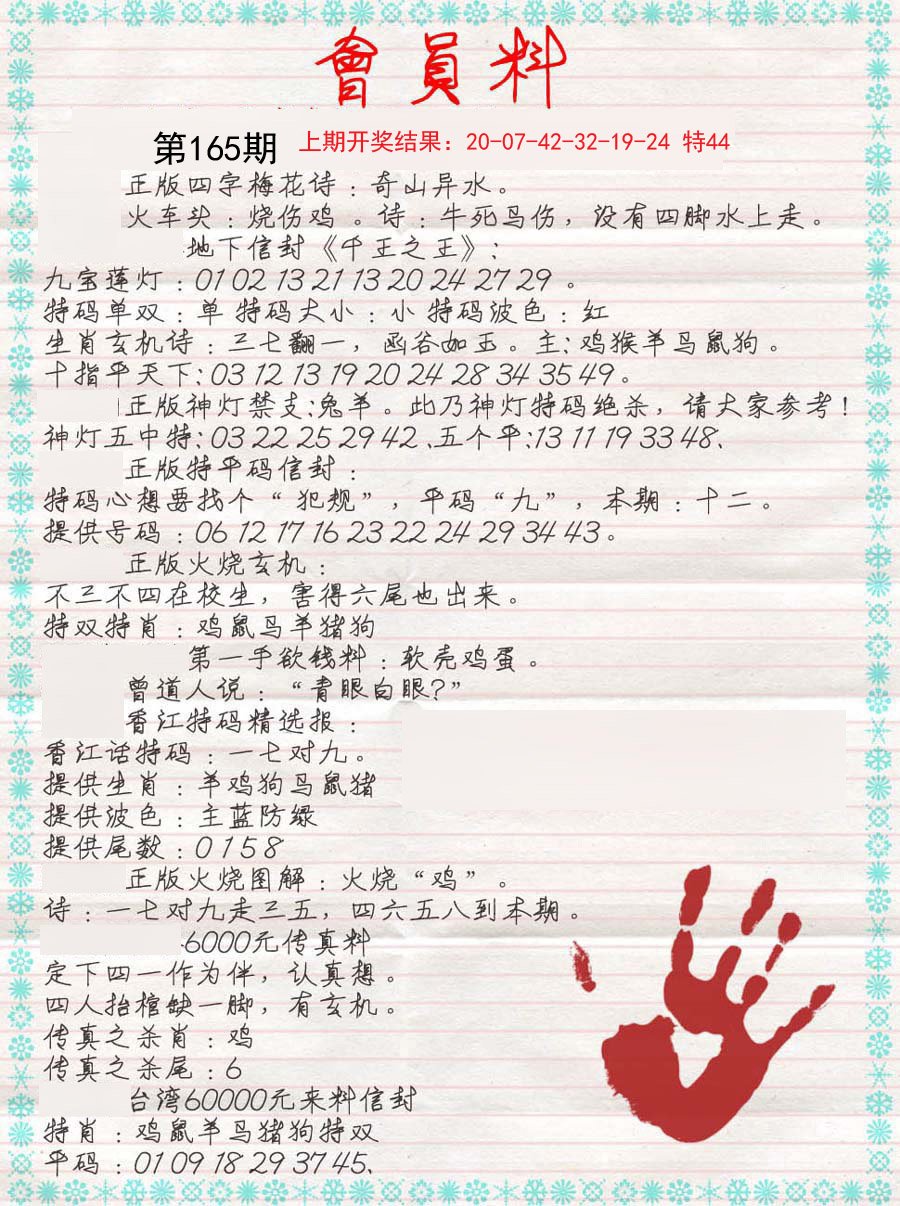 會員料
第165期 上期开奖结果：20-07-42-32-19-24 特44
正版四字梅花诗：奇山异水。
火车头：烧伤鸡。诗：牛死鸟伤，没有四脚水上走。
地下信封《千王之王》：
九宝莲灯：01 02 13 21 13 20 24 27 29 。
特码单双：单 特码大小：小 特码波色：红
生肖玄机诗：三七翻一，函谷如玉。主：鸡猴羊马鼠狗。
十指平天下：03 12 13 19 20 24 28 34 35 49。
正版神灯禁支：兔羊。此乃神灯特码绝杀，请大家参考！
神灯五中特：03 22 25 29 42、五个平：13 11 19 33 48、
正版特平码信封：
特码心想要找个“犯规”，平码“九”，本期：十二。
提供号码：06 12 17 16 23 22 24 29 34 43。
正版火烧玄机：
不三不四在校生，害得六尾也出来。
特双特肖：鸡鼠马羊猪狗
第一手欲钱料：软壳鸡蛋。
曾道人说：“青眼白眼？”
香江特码精选报：
香江话特码：一七对九。
提供生肖：羊鸡狗马鼠猪
提供波色：主蓝防绿
提供尾数：0 1 5 8
正版火烧图解：火烧“鸡”。
诗：一七对九走三五，四六五八到本期。
6000元传真料
定下四一作为伴，认真想。
四人抬棺缺一脚，有玄机。
传真之杀肖：鸡
传真之杀尾：6
台湾60000元来料信封
特肖：鸡鼠羊马猪狗特双
平码：01 09 18 29 37 45、